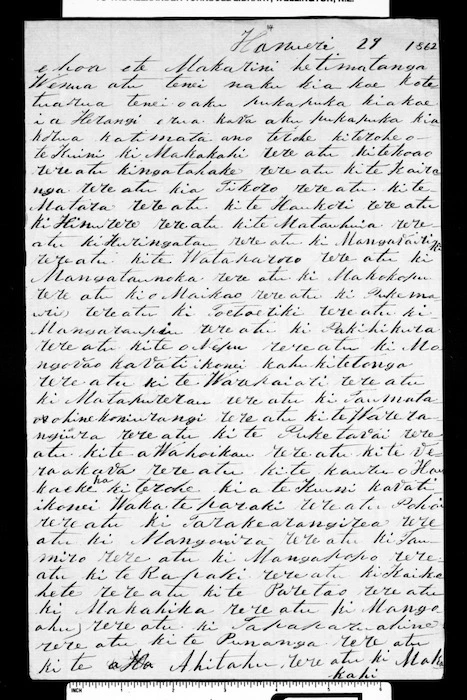 Hanueri 29 1862
e hoa ete Makarini he timatanga
Wenua atu tenei naku kia koe Kote
tuarua tenei oaku pukapuka kia koe
i a Herangi erua kava aku pukapuka kia
korua katimata ano te rohe kiterohe o
te Kuini ki Makakahi rere atu kitekoao
rere atu kingatahake rere atu kite Kaira
nga rere atu kia Tikoro rere atu kite
Matara rere atu kite Haukoti rere atu
ki Himurere rere atu kite Matauhuia rere
atu ki Huringatau rere atu ki
rere atu kite Wataparoro rere atu ki
Mangataunoka rere atu ki Makokopu
rere atu ki o Maikao rere atu ki Pukema
rere atu ki Toetoetiki rere atu ki
rere atu ki Pukihikura
rere atu kite o Nepu rere atu ki Ma
ngovao kavati ikonei kahu kitetonga
rere atu ki te Warakaiati rere atu
ki Matapurerau rere atu ki Taumata
ohinekoniurangi rere atu kite Warera
ngiura rere atu ki te Puketavai rere
atu kite a Wahoikau rere atu kite Ve
raakava rere atu kite kauru o Hau
kaeke ki terohe kia te Kuini kavati
ikonei Waka te paraki rere atu Pohoi
rere atu ki Tarakearangirea rere
atu ki Mangowira rere atu ki Tau
miro rere atu ki Mangapapo rere
atu ki te Kapaki rere atu ki Kaika
hete rere atu kite Paretao rere atu
ki Makahika rere atu ki Mango
ahu rere atu ki Tapaparuahine
rere atu kite Punanga rere atu
ki te Ahitahu rere atu ki Maka
kahi
INCH